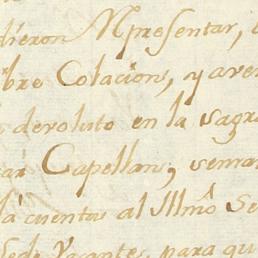 dieron Rpresentar,
bre Colacion, y aven
devoluto en la sagra
ar Capellan, seman
la cuenta al Illmô Se
Sede Vacante, para qu